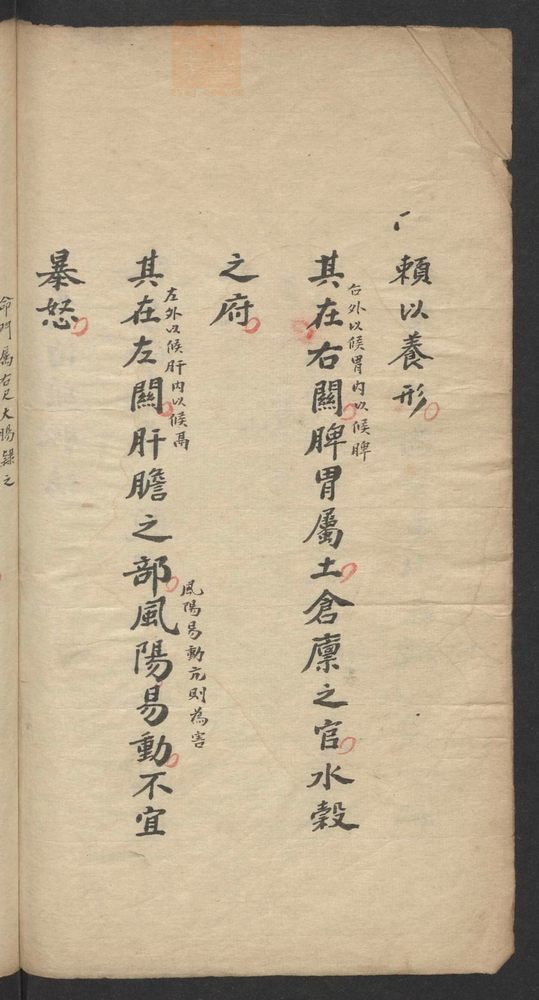 賴以養形
其在右關脾胃屬土倉廩之官水穀
右外以候胃内以候脾
之府
其在左關肝膽之部風陽易動不宜
左外以候肝内以候鬲
風陽易動亢則為害
暴怒
命門屬右尺大腸